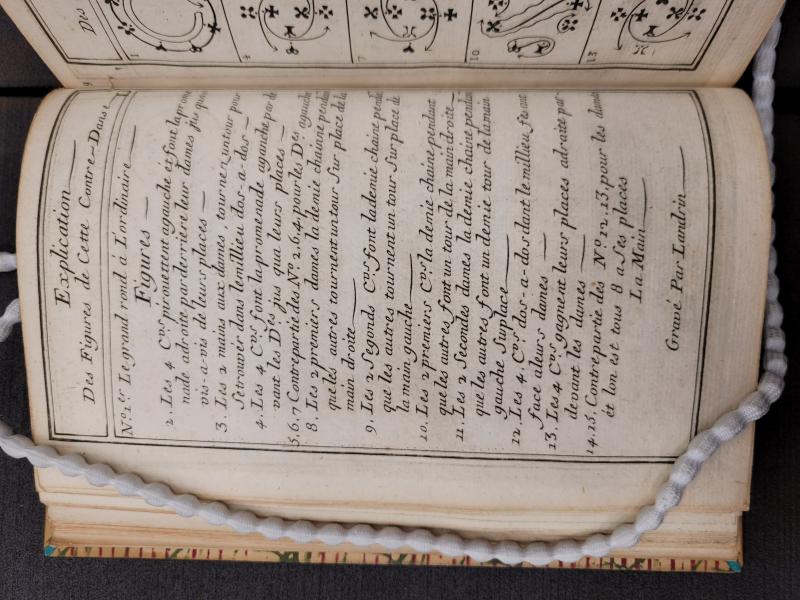 Explication
Des Figures de Cette Contre-Danse
No. 1er Le grand rond à L'ordinaire
Figures
2. Les 4 Cvrs pirouettent agauche et font la prome
nade adroite par derriere leur dames jus quau
vis-a-vis de leurs places
3. Les 2 mains aux dames, tournent un tour pour
Se trouver dans le millieu dos-a-dos
4. Les 4 Cvrs font la promenade agauche par de
vant les Des jus qua leurs places
5, 6, 7 Contrepartie des No. 2, 6, 4, pour les Des agauche
8. Les 2 premiers dames la demie chainne pendan
que les autres tournent un tour Sur place de la
main droite
9. Les 2 Segonds Cvrs font la demie chaine pende
que les autres tournent un tour Sur place de
la main gauche
10. Les 2 premiers Cvrs la demie chaine pendant
que les autres font un tour de la main droite
11. Les 2 Secondes dames la demie chaine pendan
que les autres font un demie tour de la main
gauche Surplace
12. Les 4 Cvrs dos-a-dos dant le millieu fesant
face aleurs dames
13. Les 4 Cvrs gagnent leurs places adroite par
devant les dames
14. 15. Contrepartie des No. 12, 13, pour les dames
et lon est tous 8 a Ses places
La Main
Gravé Par Landrin
Des
4
7
10
13